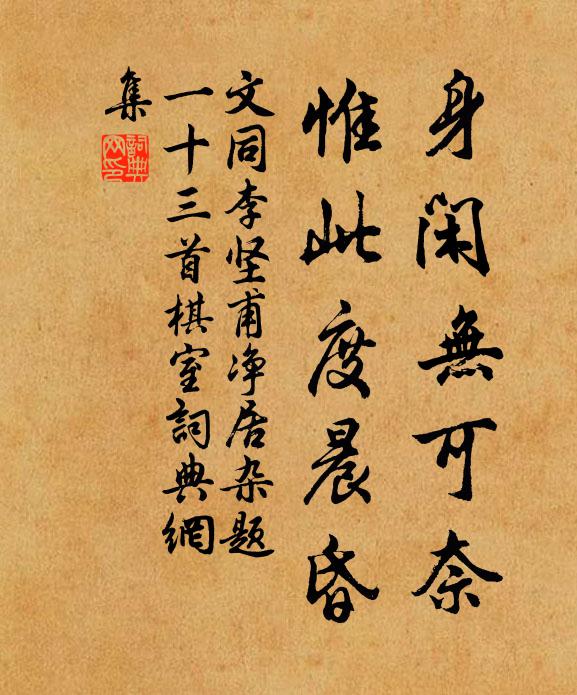 身閑無可奈
惟此度晨昏
文同李坚甫净居杂题
一十三首棋室詞典網
集
詞典
网印